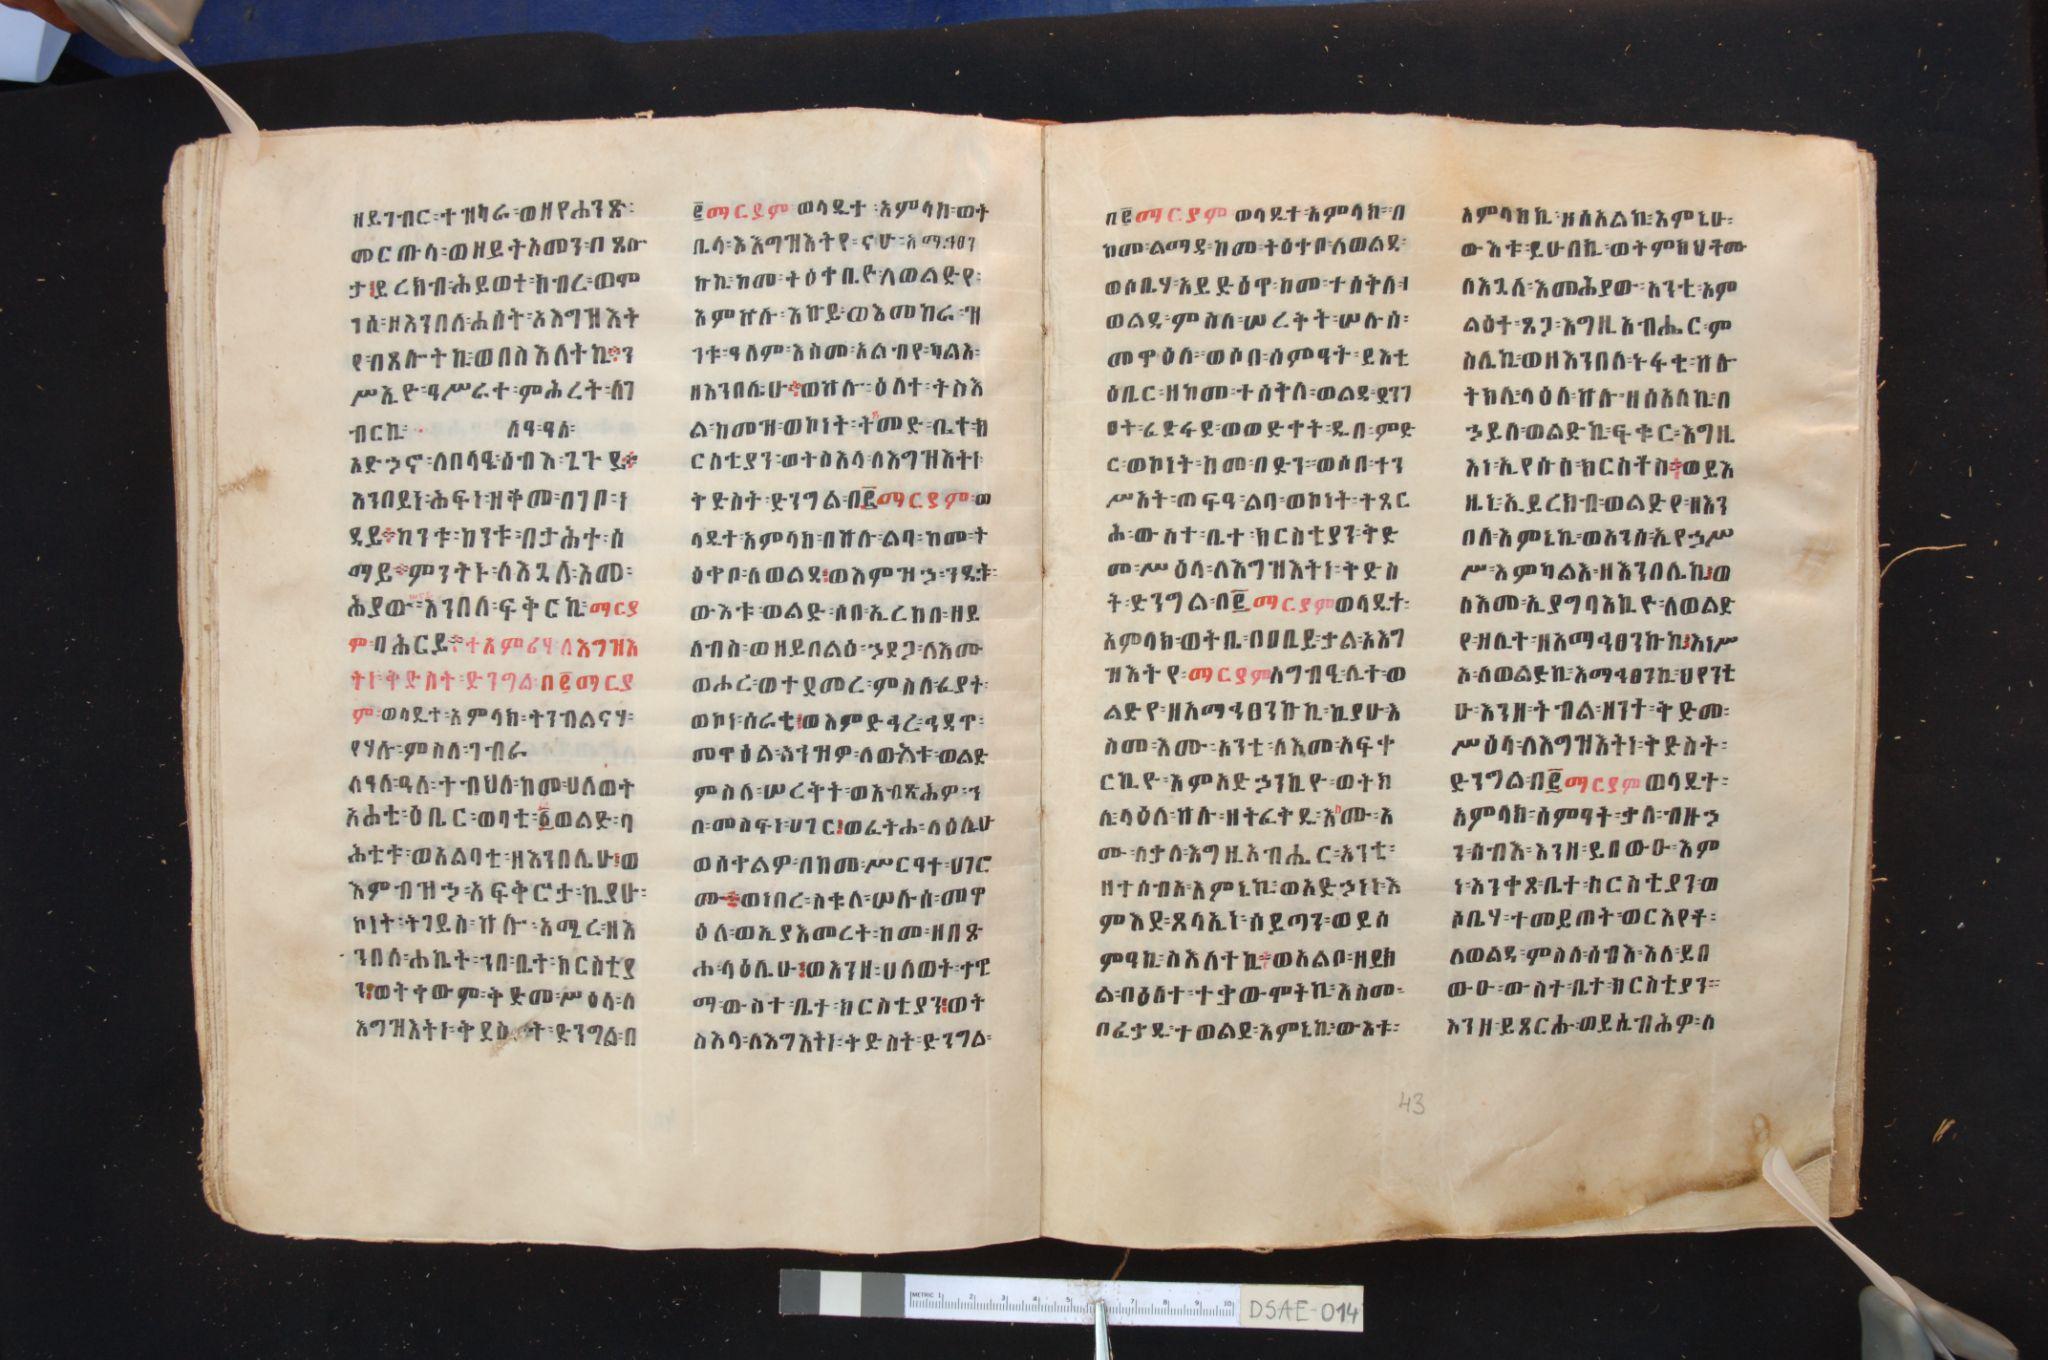 ዘይገብር፡ተዝካራ፡ወዘየሐንጽ፡
መርጡላ፡ወዘይትአመን፡በጸሎ
ታ፡ይረክብ፡ሕይወተ፡ክብረ፡ወሞ
ገሰ፡ዘእንበለ፡ሐሰት፡እግዝእት
የ፡በጸሎትኪ፡ወበስእለትኪ፡ን
ሥኢዮ፡ዓሥራተ፡ምሕረት፡ለገ
ብርኪ፡ ለዓ፡ዓለ፡
አድኃኖ፡ለበላዔ፡ሰብእ፡
እንበይነ፡ሕፍነ፡ዝቅመ፡በገቦ፡ነ
ዳይ፡ከንቱ፡ከንቱ፡በታሕተ፡ሰ
ማይ፡ምንትኑ፡ለእጓለ፡እመ፡
ሕያው፡እንበለ፡ፍቅርኪ፡ማርያ
ም፡ባሕርይ፡ተአምሪሃ፡ለእግዝእ
ትነ፡ቅድስት፡ድንግል፡በ፪ማርያ
ም፡ወላዲተ፡አምላክ፡ትንብልናሃ፡
የሃሉ፡ምስለ፡ገብራ
ለዓለ፡ዓለ፡ትብህለ፡ከመ፡ሀለወት
አሐቲ፡ዕቤር፡ወባቲ፡፩ወልድ፡ባ
ሕቲት፡ወአልባቲ፡ዘእንበሌሁ፡ወ
እምብዝኃ፡አፍቅሮታ፡ኪያሁ፡
ኮነት፡ትገይስ፡ኵሎ፡አሚረ፡ዘእ
ንበለ፡ሐኬት፡ኀበ፡ቤተ፡ክርስቲያ
ን፡ወትቀውም፡ቅድመ፡ሥዕላ፡ለ
እግዝእትነ፡ቅድስት፡ድንግል፡በ
፪ማርያም፡ወላዲተ፡አምላክ፡ወት
ቤላ፡እእግዝእትየ፡ናሁ፡አማኅፀን
ኩኪ፡ከመ፡ትዕቀቢዮ፡ለወልድየ፡
እምኵሉ፡እኩይ፡ወእመከራ፡ዝ
ንቱ፡ዓለም፡እስመ፡አልብየ፡ካልእ፡
ዘእንበሌሁ፡ወኵሉ፡ዕለተ፡ትስእ
ል፡ከመዝ፡ወኮነት፡ትመድ፡ቤተ፡ክ
ርስቲያን፡ወትስእላ፡ለእግዝእትነ፡
ቅድስት፡ድንግል፡በ፪ማርያም፡ወ
ላዲተ፡አምላክ፡በኵሉ፡ልባ፡ከመ፡ት
ዕቀቦ፡ለወልዳ፡ወእምዝ፡ኃ፡ንዴት፡
ውእቱ፡ወልድ፡ሶበ፡ኢረከበ፡ዘይ
ለብስ፡ወዘይበልዕ፡ኃደጋ፡ለእሙ
ወሖረ፡ወተደመረ፡ምስለ፡ፈያት፡
ወኮነ፡ሰራቂ፡ወእምድኅረ፡ኅዳጥ፡
መዋዕል፡አኀዝዎ፡ለውእቱ፡ወልድ
ምስለ፡ሠረቅት፡ወአብጽሕዎ፡ኀ
በ፡መስፍነ፡ሀገር፡ወፈትሐ፡ላዕሌሁ
ወሰቀልዎ፡በከመ፡ሥርዓተ፡ሀገሮ
ሙ፡ወነበረ፡ስቁለ፡ሠሉሰ፡መዋ
ዕለ፡ወኢያእመረት፡ከመ፡ዘበጽ
ሐ፡ላዕሌሁ፡ወእንዘ፡ሀለወት፡ተዋ
ማ፡ውስተ፡ቤተ፡ክርስቲያን፡ወት
ስእላ፡ለእግእትነ፡ቅድስት፡ድንግል፡
በ፪ማርያም፡ወላዲተ፡አምላክ፡በ
ከመ፡ልማዳ፡ከመ፡ትዕቀቦ፡ለወልዳ፡
ወሶቤሃ፡አይድዕዋ፡ከመ፡ተሰቅለ፡
ወልዳ፡ምስለ፡ሠረቅት፡ሠሉሰ፡
መዋዕለ፡ወሶበ፡ሰምዓት፡ይእቲ
ዕቤር፡ዘከመ፡ተሰቅለ፡ወልዳ፡ደንገ
ፀት፡ፈድፋደ፡ወወድቀት፡ዲበ፡ምድ
ር፡ወኮነት፡ከመ፡በድን፡ወሶበ፡ተን
ሥአት፡ጠፍዓ፡ልባ፡ወኮነት፡ትጸር
ሕ፡ውስተ፡ቤተ፡ክርስቲያን፡ቅድ
መ፡ሥዕላ፡ለእግዝእትነ፡ቅድስ
ት፡ድንግል፡በ፪ማርያም፡ወላዲተ፡
አምላክ፡ወትቤ፡በዐቢይ፡ቃል፡እእግ
ዝእትየ፡ማርያም፡አግብዒ፡ሊተ፡ወ
ልድየ፡ዘአማኅፀንኩኪ፡ኪያሁ፡እ
ስመ፡እሙ፡አንቲ፡ለእመ፡አፍቀ
ርኪዮ፡እምአድኃንኪዮ፡ወትክ
ሊ፡ላዕለ፡ኵሉ፡ዘትፈቅዲ፡እሙ፡እ
ሙ፡ለቃለ፡እግዚአብሔር፡አንቲ፡
ዘተሰብአ፡እምኔኪ፡ወአድኃነነ፡እ
ምእደ፡ጸላኢነ፡ሰይጣን፡ወይሰ
ምዓኪ፡ስእለተኪ፡ወአልቦ፡ዘይክ
ል፡በዕለተ፡ተቃውሞትኪ፡እስመ፡
በፈቃዱ፡ተወልደ፡እምኔኪ፡ውእቱ፡
አምላክኪ፡ዘሰአልኪ፡እምኔሁ፡
ውእቱ፡ይሁበኪ፡ወትምክህቶሙ
ለእጓለ፡እመሕያው፡አንቲ፡እም
ልዕተ፡ጸጋ፡እግዚአብሔር፡ም
ስሌኪ፡ወዘእንበለ፡ትፋቂ፡ኵሉ
ትክሊ፡ላዕለ፡ኵሉ፡ዘሰአለኪ፡በ
ኃይለ፡ወልድኪ፡ፍቁር፡እግዚ
እነ፡ኢየሱስ፡ክርስቶስ፡ወይእ
ዜኒ፡ኢይረክብ፡ወልድየ፡ዘእን
በለ፡እምኔኪ፡ወአንሰ፡ኢየኃሥ
ሥ፡እምካልእ፡ዘእንበሌኪ፡ወ
ለእመ፡ኢያግባእኪዮ፡ለወልድ
የ፡ዘሊተ፡ዘአማኅፀንኩኪ፡እነሥ
እ፡ለወልድኪ፡አማኅፀንኪ፡ህየንቲ
ሁ፡እንዘ፡ትብል፡ዘንተ፡ቅድመ፡
ሥዕላ፡ለእግዝእትነ፡ቅድስት፡
ድንግል፡በ፪ማርያም፡ወላዲተ፡
አምላክ፡ሰምዓት፡ቃለ፡ብዙኃ
ን፡ሰብእ፡እንዘ፡ይበውዑ፡እም
ነ፡አንቀጸ፡ቤተ፡ክርስቲያን፡ወ
ሶቤሃ፡ተመይጠት፡ወርእየቶ፡
ለወልዳ፡ምስለ፡ሰብእ፡እለ፡ይበ
ውዑ፡ውስተ፡ቤተ፡ክርስቲያን፡
እንዘ፡ይጸርሑ፡ወይሴብሕዎ፡ለ
43
METRIC 1 2 3 4 5 7 8 9 10
DSAE-014